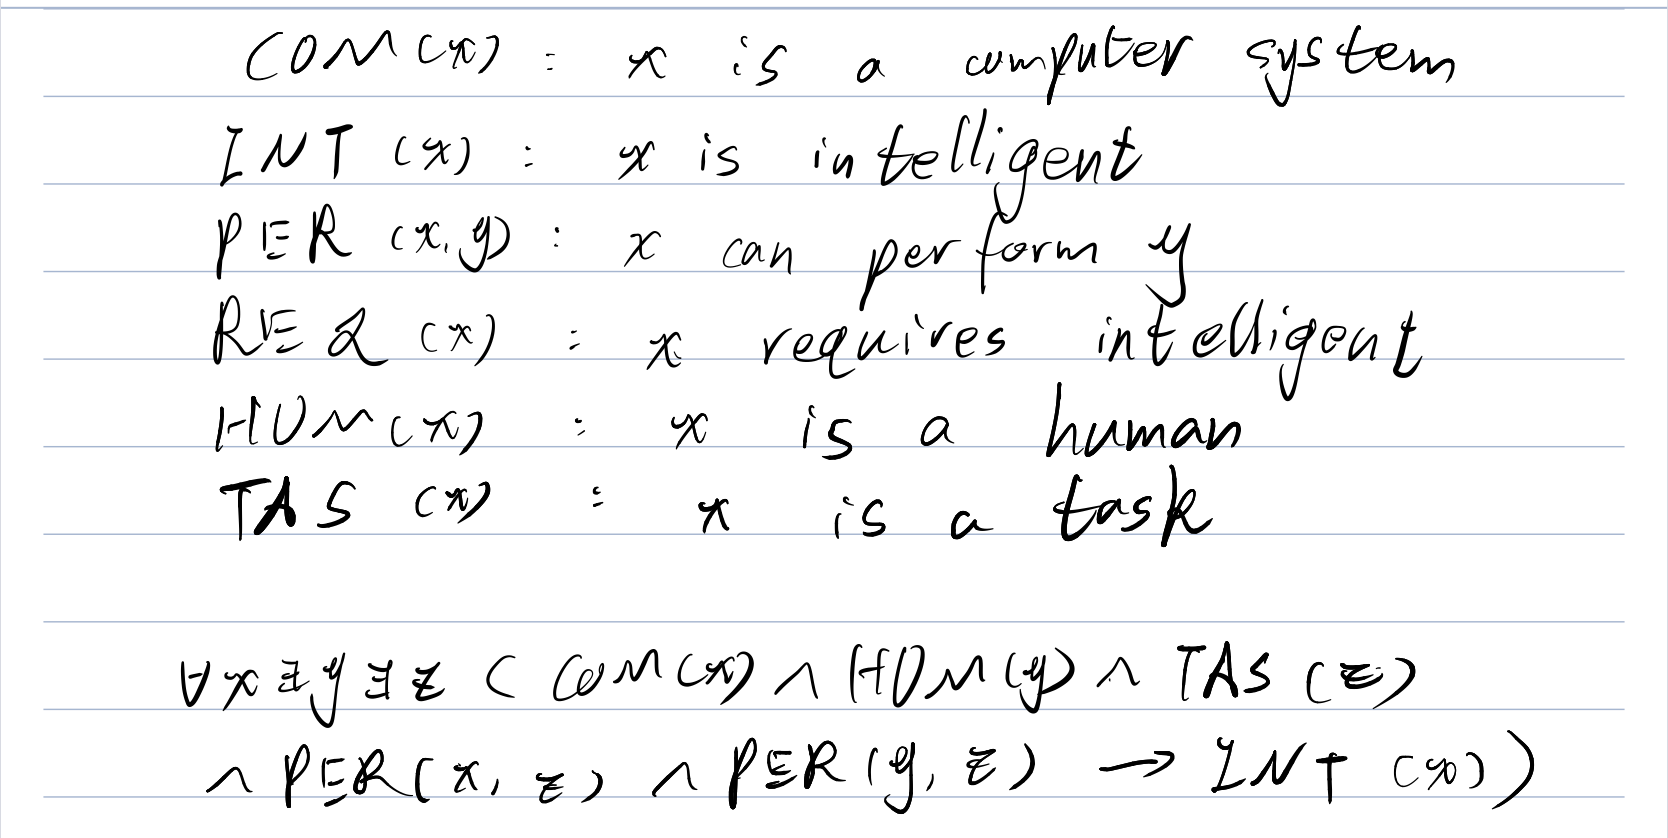 COM(x) : x is a computer system
INT (x) : x is intelligent
PER (x,y) : x can perform y
REQ (x) : x requires intelligent
HUM(x) : x is a human
TAS (x) : x is a task
∀x∃y∃z ( COM(x) ∧ HUM(y) ∧ TAS (z)
∧ PER(x, z) ∧ PER(y, z) → INT (x))